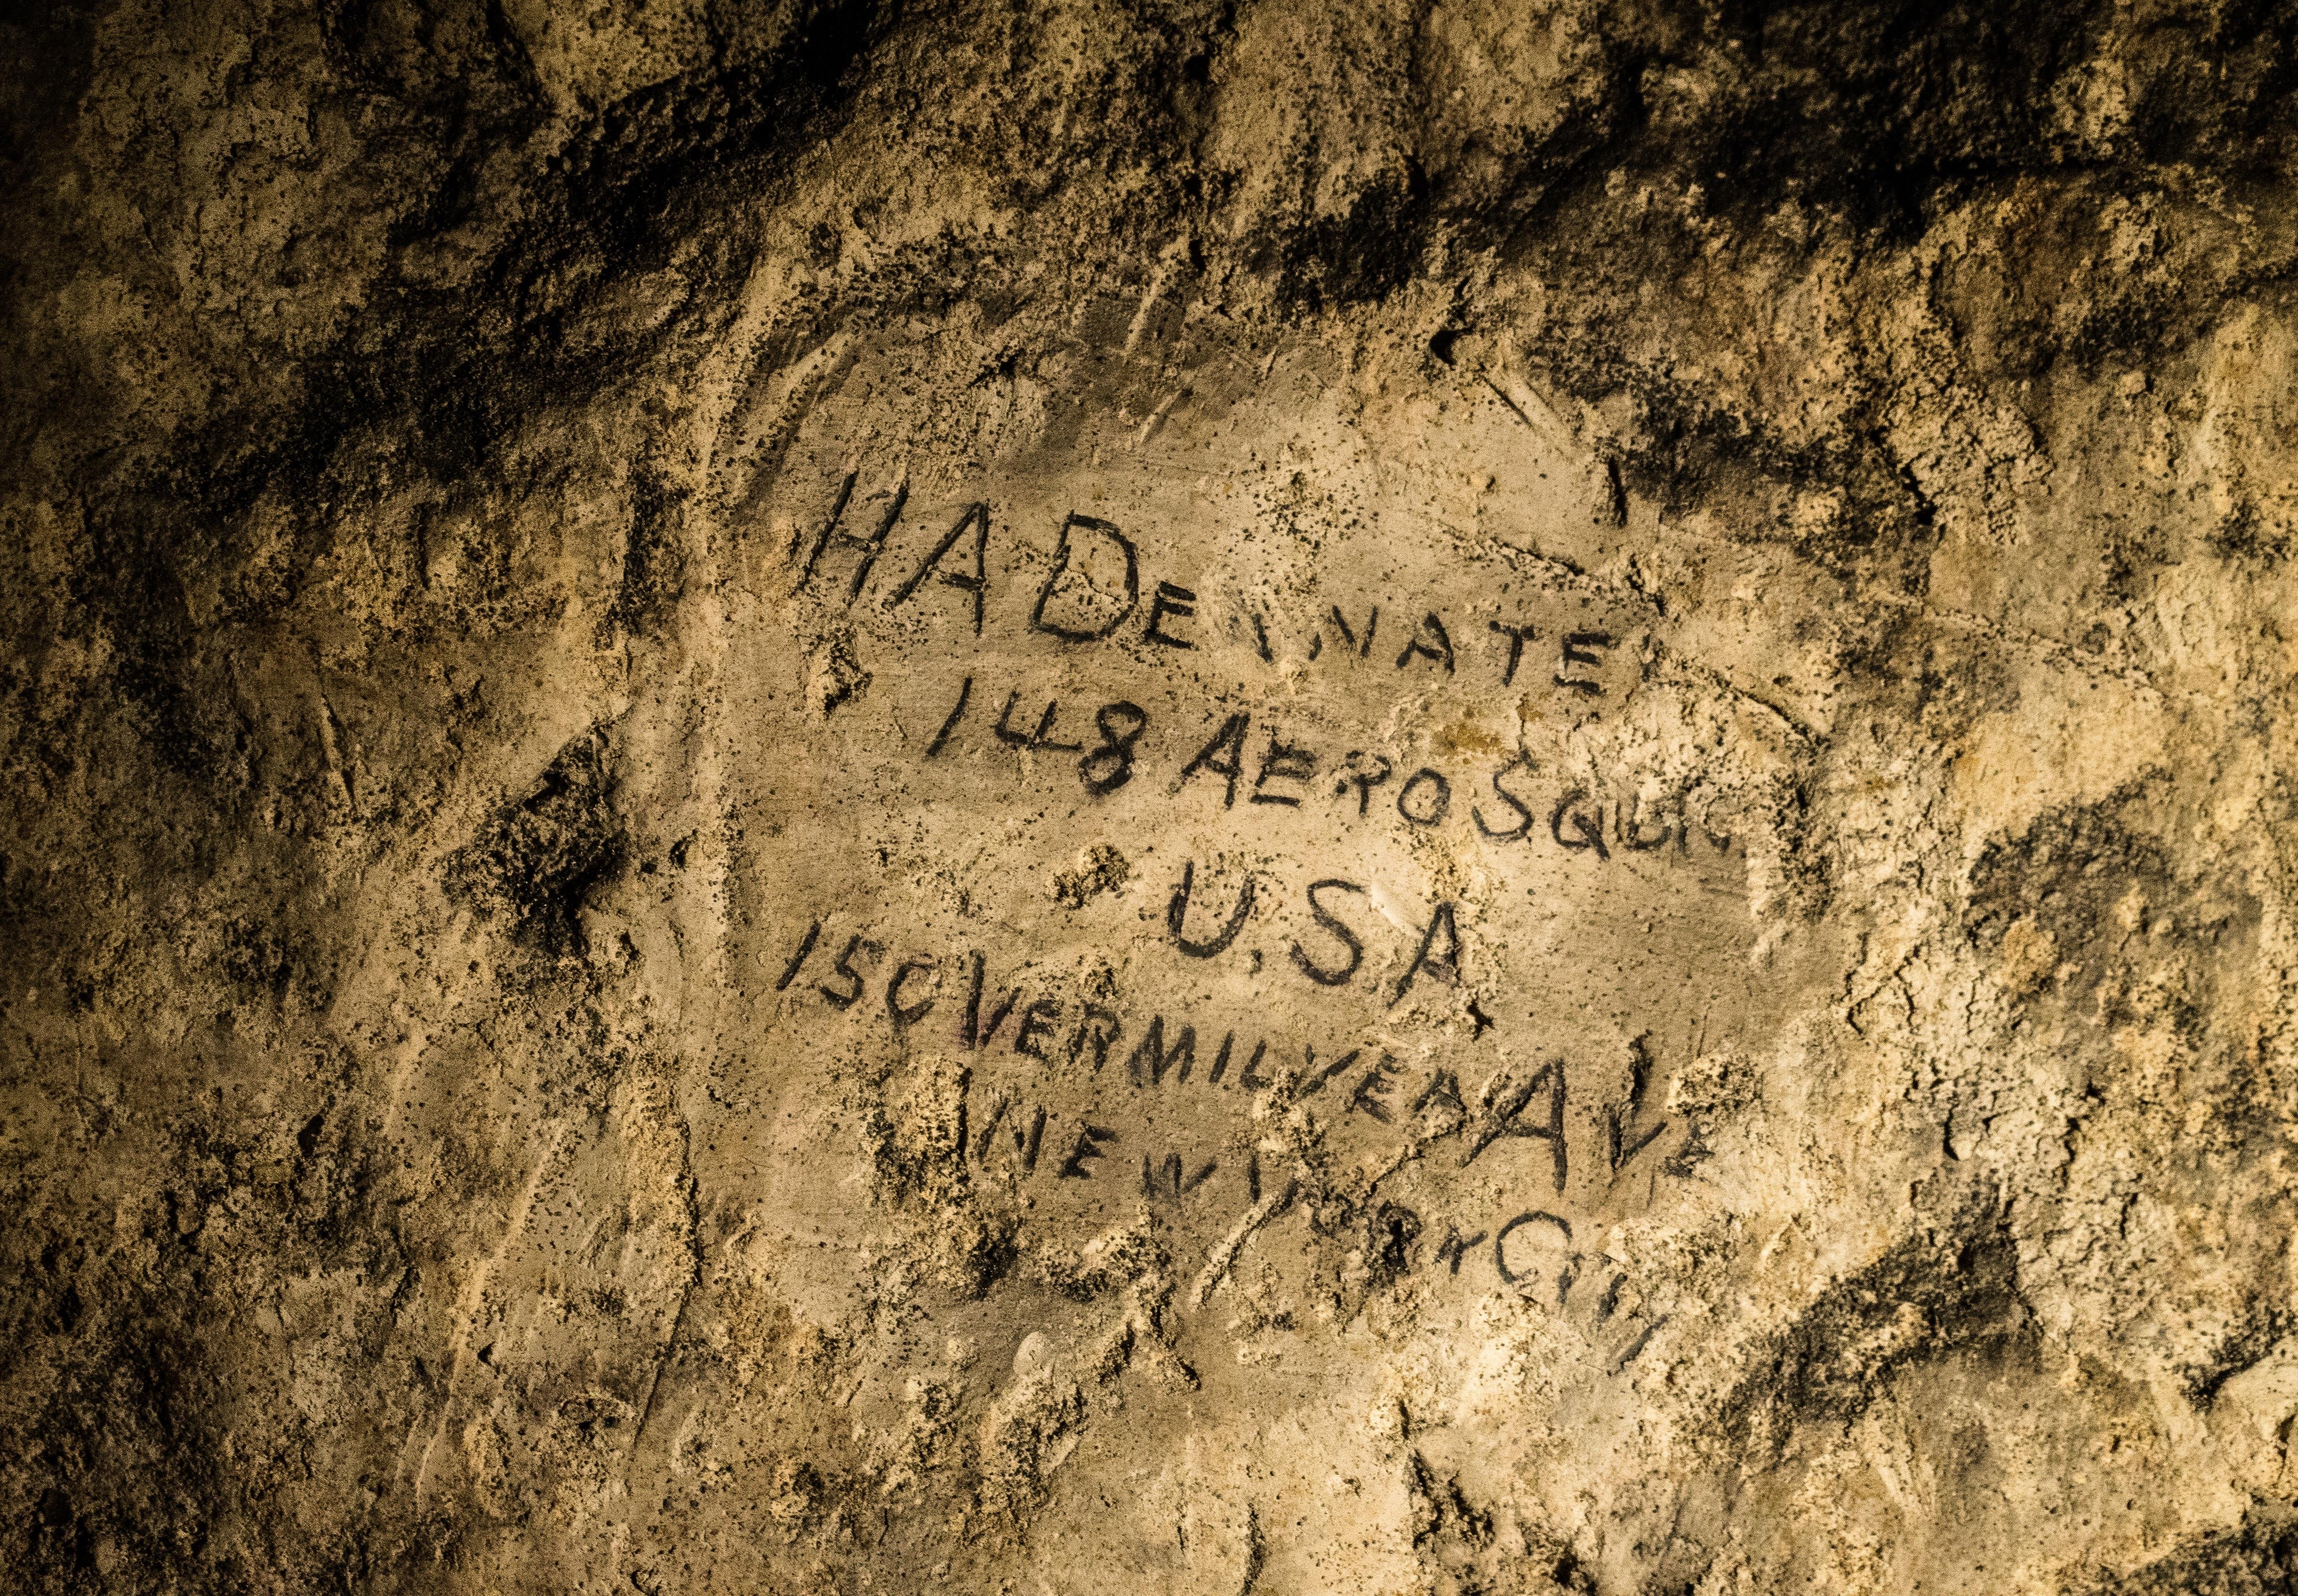 HA DEANATE
148 AERO SQUN
U.S.A
150 VERMILYEA AVE
NEW YORK CITY